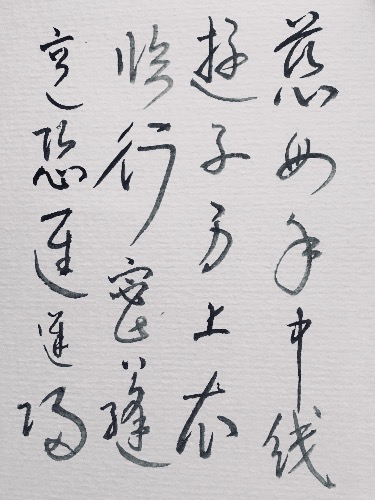 慈母手中线
遊子身上衣
临行密〻缝
意恐迟迟归